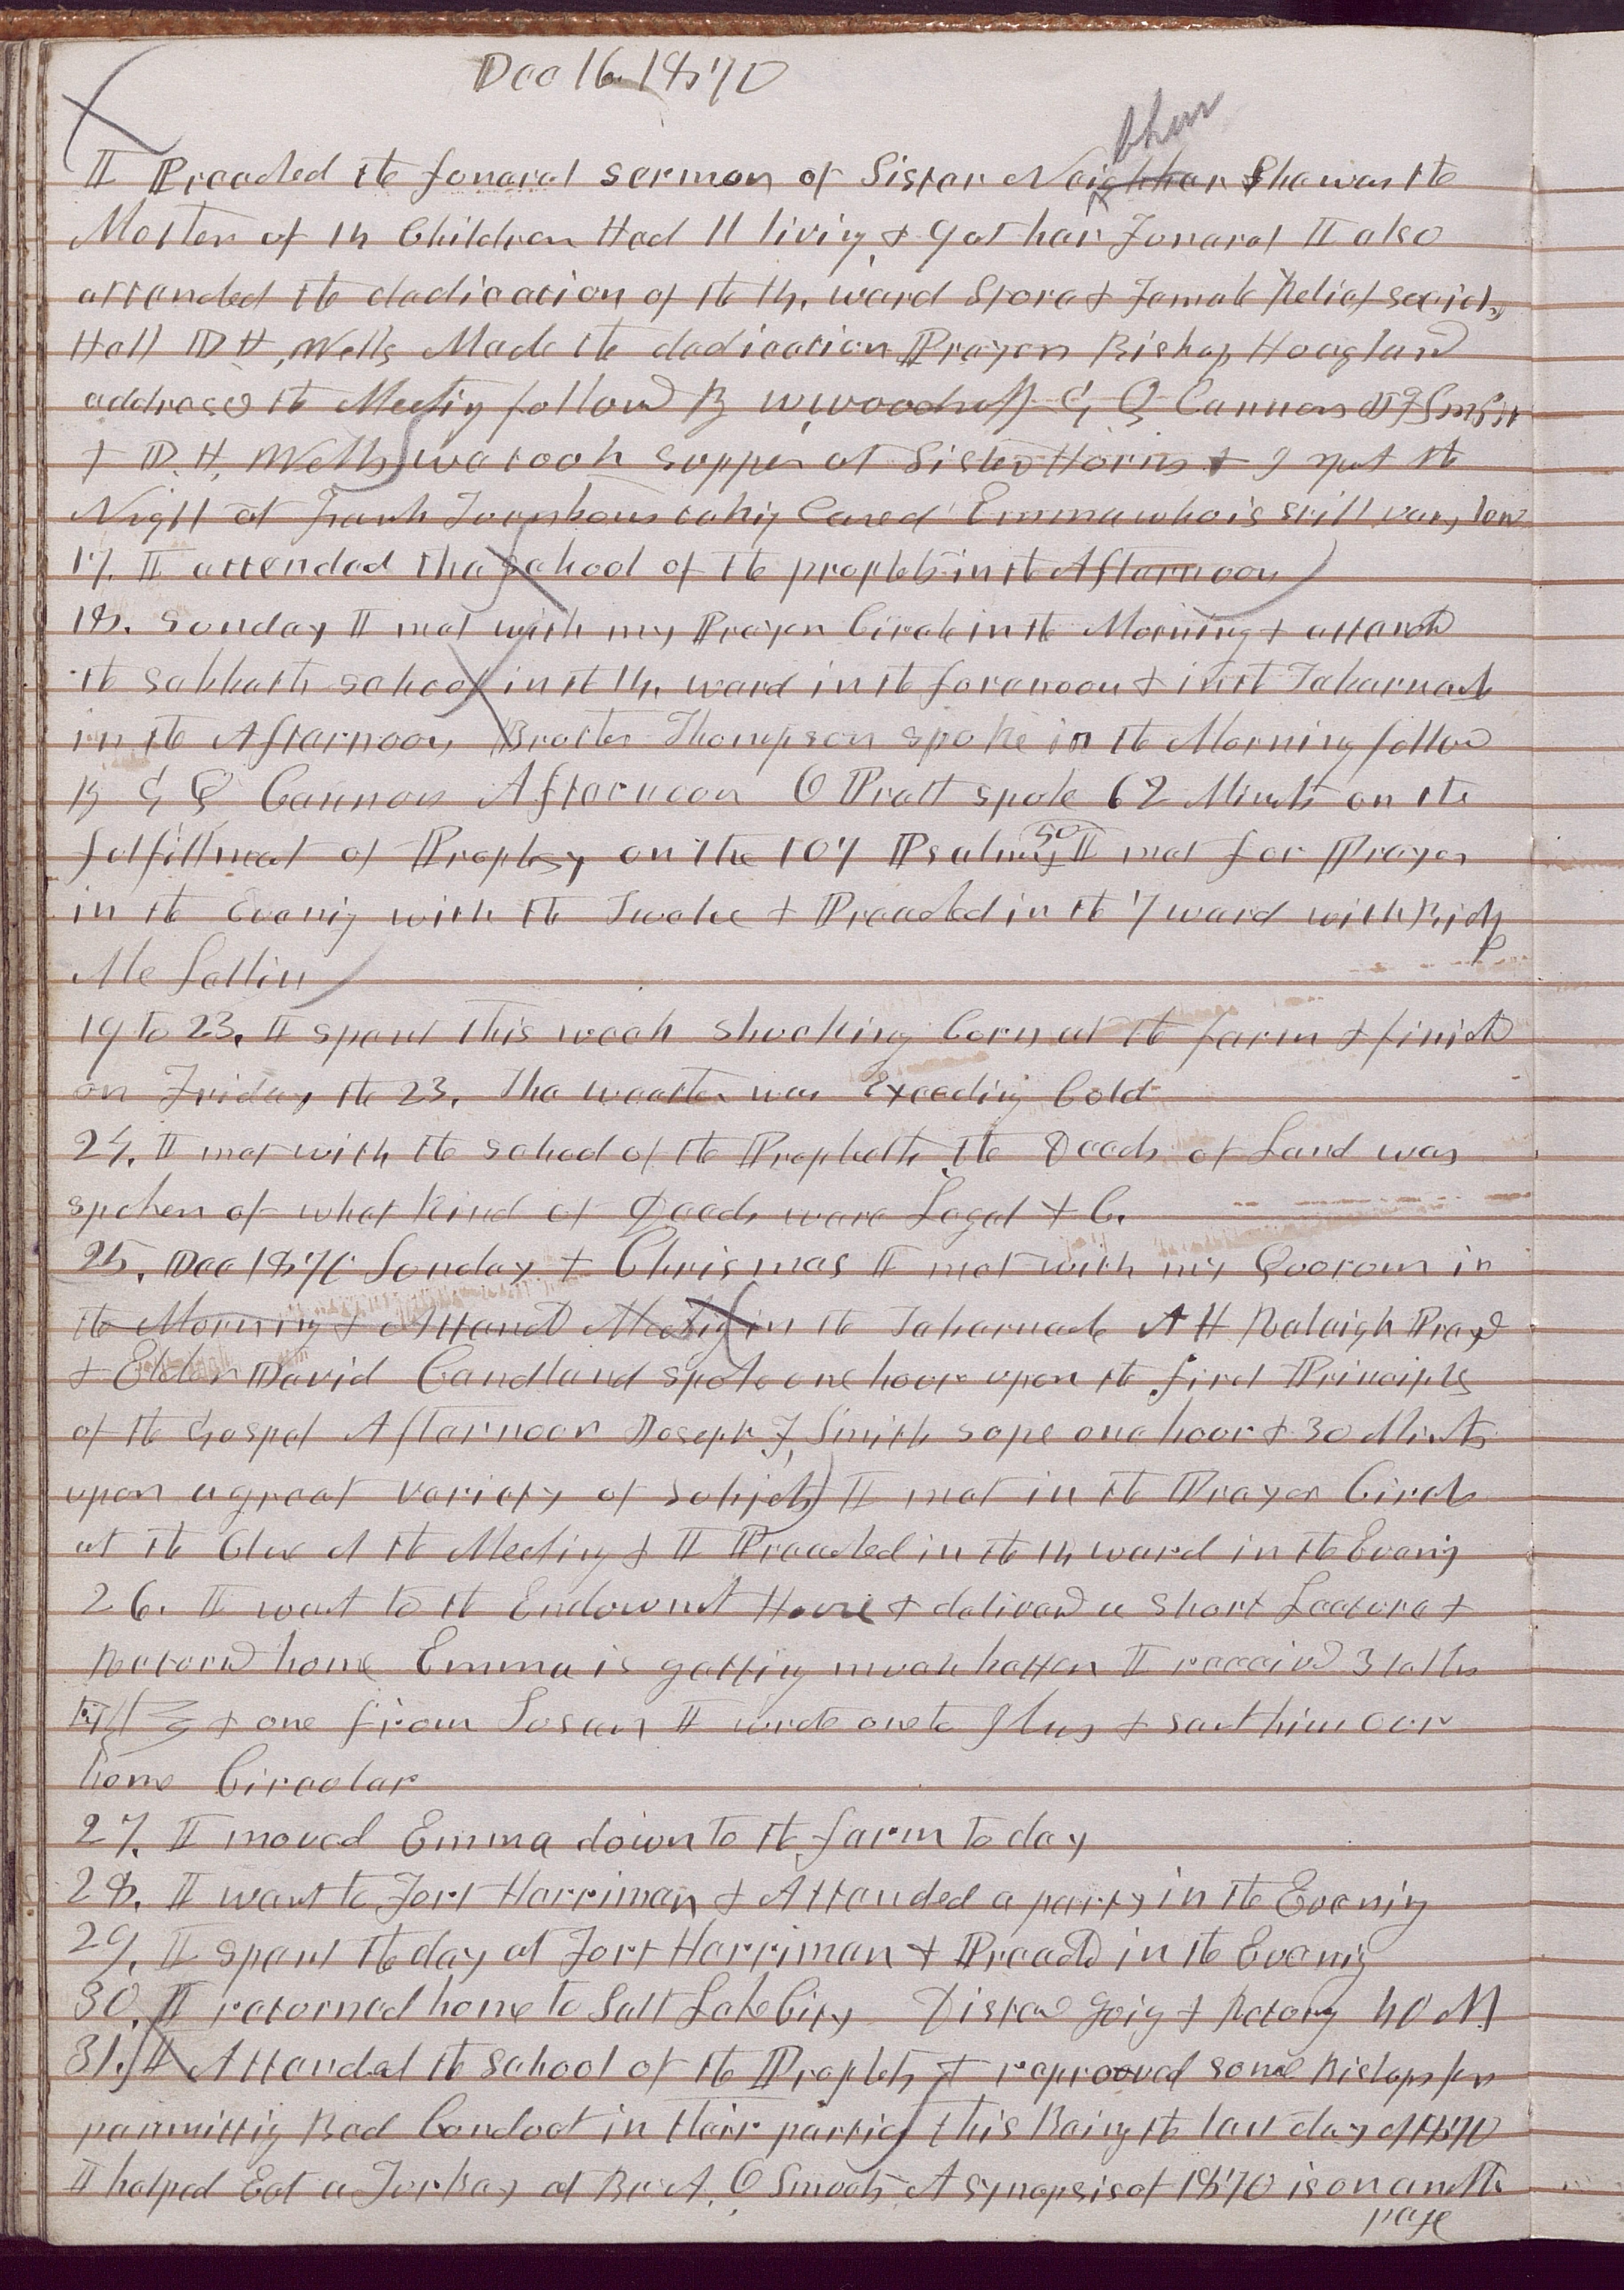 Dec 16. 1870
bhur
I Preached the funaral sermon of Sister Neighbar Sha was the
Mother of 14 Children Had 11 living & 9 at har Funaral I also
attended the dadication of the 14. ward Store & Female Relief society
Hall D H, Wells Made the dadication Prayer Bishop Hoagland
addresed the Meeting followd By W, Woodruff G Q Cannon J F Smith
& D. H. Wells we took supper at Sister Horns & I spent the
Night at Frank Turnbow taking Care of Emma who is still vary low
17. I attended tha school of the prophets in the Afternoon
18. Sunday I met with my Prayer Circle in the Morning & attend
the sabbath school in the 14. ward in the forenoon & in the Tabarnacle
in the Afternoon, Brother Thompson spoke in the Morning followd
By G Q Cannon Afternoon O Pratt spoke 62 Minuts on the
fulfillment of Prophesy on the 107 Psalms, 50 I met for Prayer
in the Evenig with the Twelve & Preached in the 7 ward with Bishp
McLallin
19 to 23. I spent this week shucking Corn at the farm & finishd
on Friday the 23. The weather was Exceeding Cold
24. I met with the school of the Propheths the Deeds of Land was
spoken of what Kind of Deeds ware Legal & C.
25. Dec 1870 Sunday & Chrismas I met with my Quorum in
the Morning & Attend Meeting in the Tabarnacle A H Raleigh Prayd
& Elder David Candland spoke one hour upon the first Principls
of the Gospel Afternoon Joseph F, Smith sope one hour & 30 Minuts
upon a great variety of subjects I met in the Prayer Circle
at the Close of the Meeting & I Preached in the 14 ward in the Evenig
26. I went to the Endowmt House & delivered a short Lecture &
Returnd home Emma is getting much better I received 3 letters
& one from Susan I wrote one to & sent him our
home Circular
27. I moved Emma down to the farm to day
28. I want to Fort Harriman & Attended a party in the Evenig
29. I spent the day at Fort Harriman & Preachd in the Evenig
30. I returned home to Salt Lake City Distance Goig & Returng 40 M.
31. I Attended the school of the Prophets & reprooved some Bishops for
parmittig Bad Conduct in thair parties this Being the last day of 1870
I helped Eat a Turkey at Br A. O Smoots A synopsis of 1870 is on anothe
page